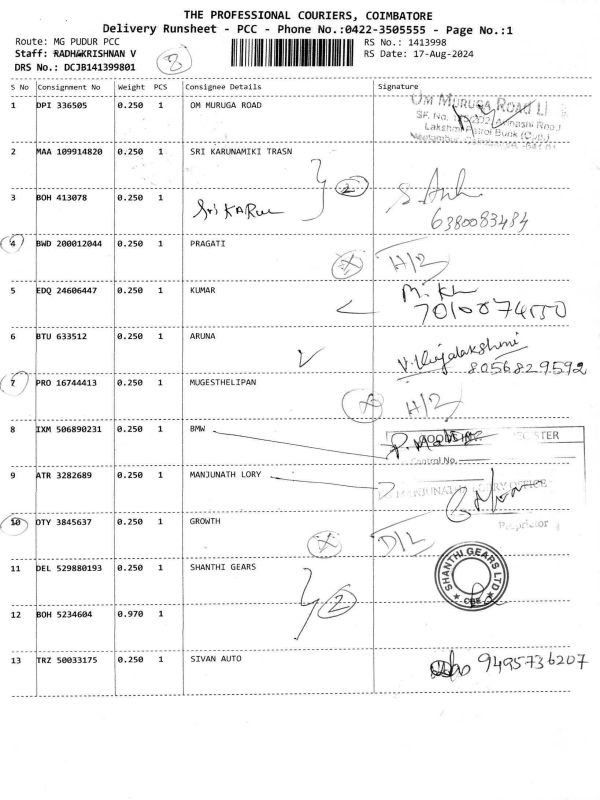 THE PROFESSIONAL COURIERS, COIMBATORE
Delivery Runsheet - PCC - Phone No.:0422-3505555 - Page No.:1
Route: MG PUDUR PCC RS No.: 1413998
Staff: RADHAKRISHNAN V RS Date: 17-Aug-2024
DRS No.: DCJB141399801
S No Consignment No Weight PCS Consignee Details Signature
1 DPI 336505 0.250 1 OM MURUGA ROAD OM MURUGA ROAD LI
SF. No.
Lakshmi Petrol Bunk (Opp.)
2 MAA 109914820 0.250 1 SRI KARUNAMIKI TRASN
2
3 BOH 413078 0.250 1 6380083484
4 BWD 200012044 0.250 1 PRAGATI H/2
5 EDQ 24606447 0.250 1 KUMAR
6 BTU 633512 0.250 1 ARUNA V. Vijalakshmi
8056829592
7 PRO 16744413 0.250 1 MUGESTHELIPAN H/2
8 IXM 506890231 0.250 1 BMW
Control No.
9 ATR 3282689 0.250 1 MANJUNATH LORY MANJUNATH LORRY OFFICE
Proprietor
10 OTY 3845637 0.250 1 GROWTH D/L
11 DEL 529880193 0.250 1 SHANTHI GEARS SHANTHI GEARS LTD
CBE
2
12 BOH 5234604 0.970 1
13 TRZ 50033175 0.250 1 SIVAN AUTO 9495736207